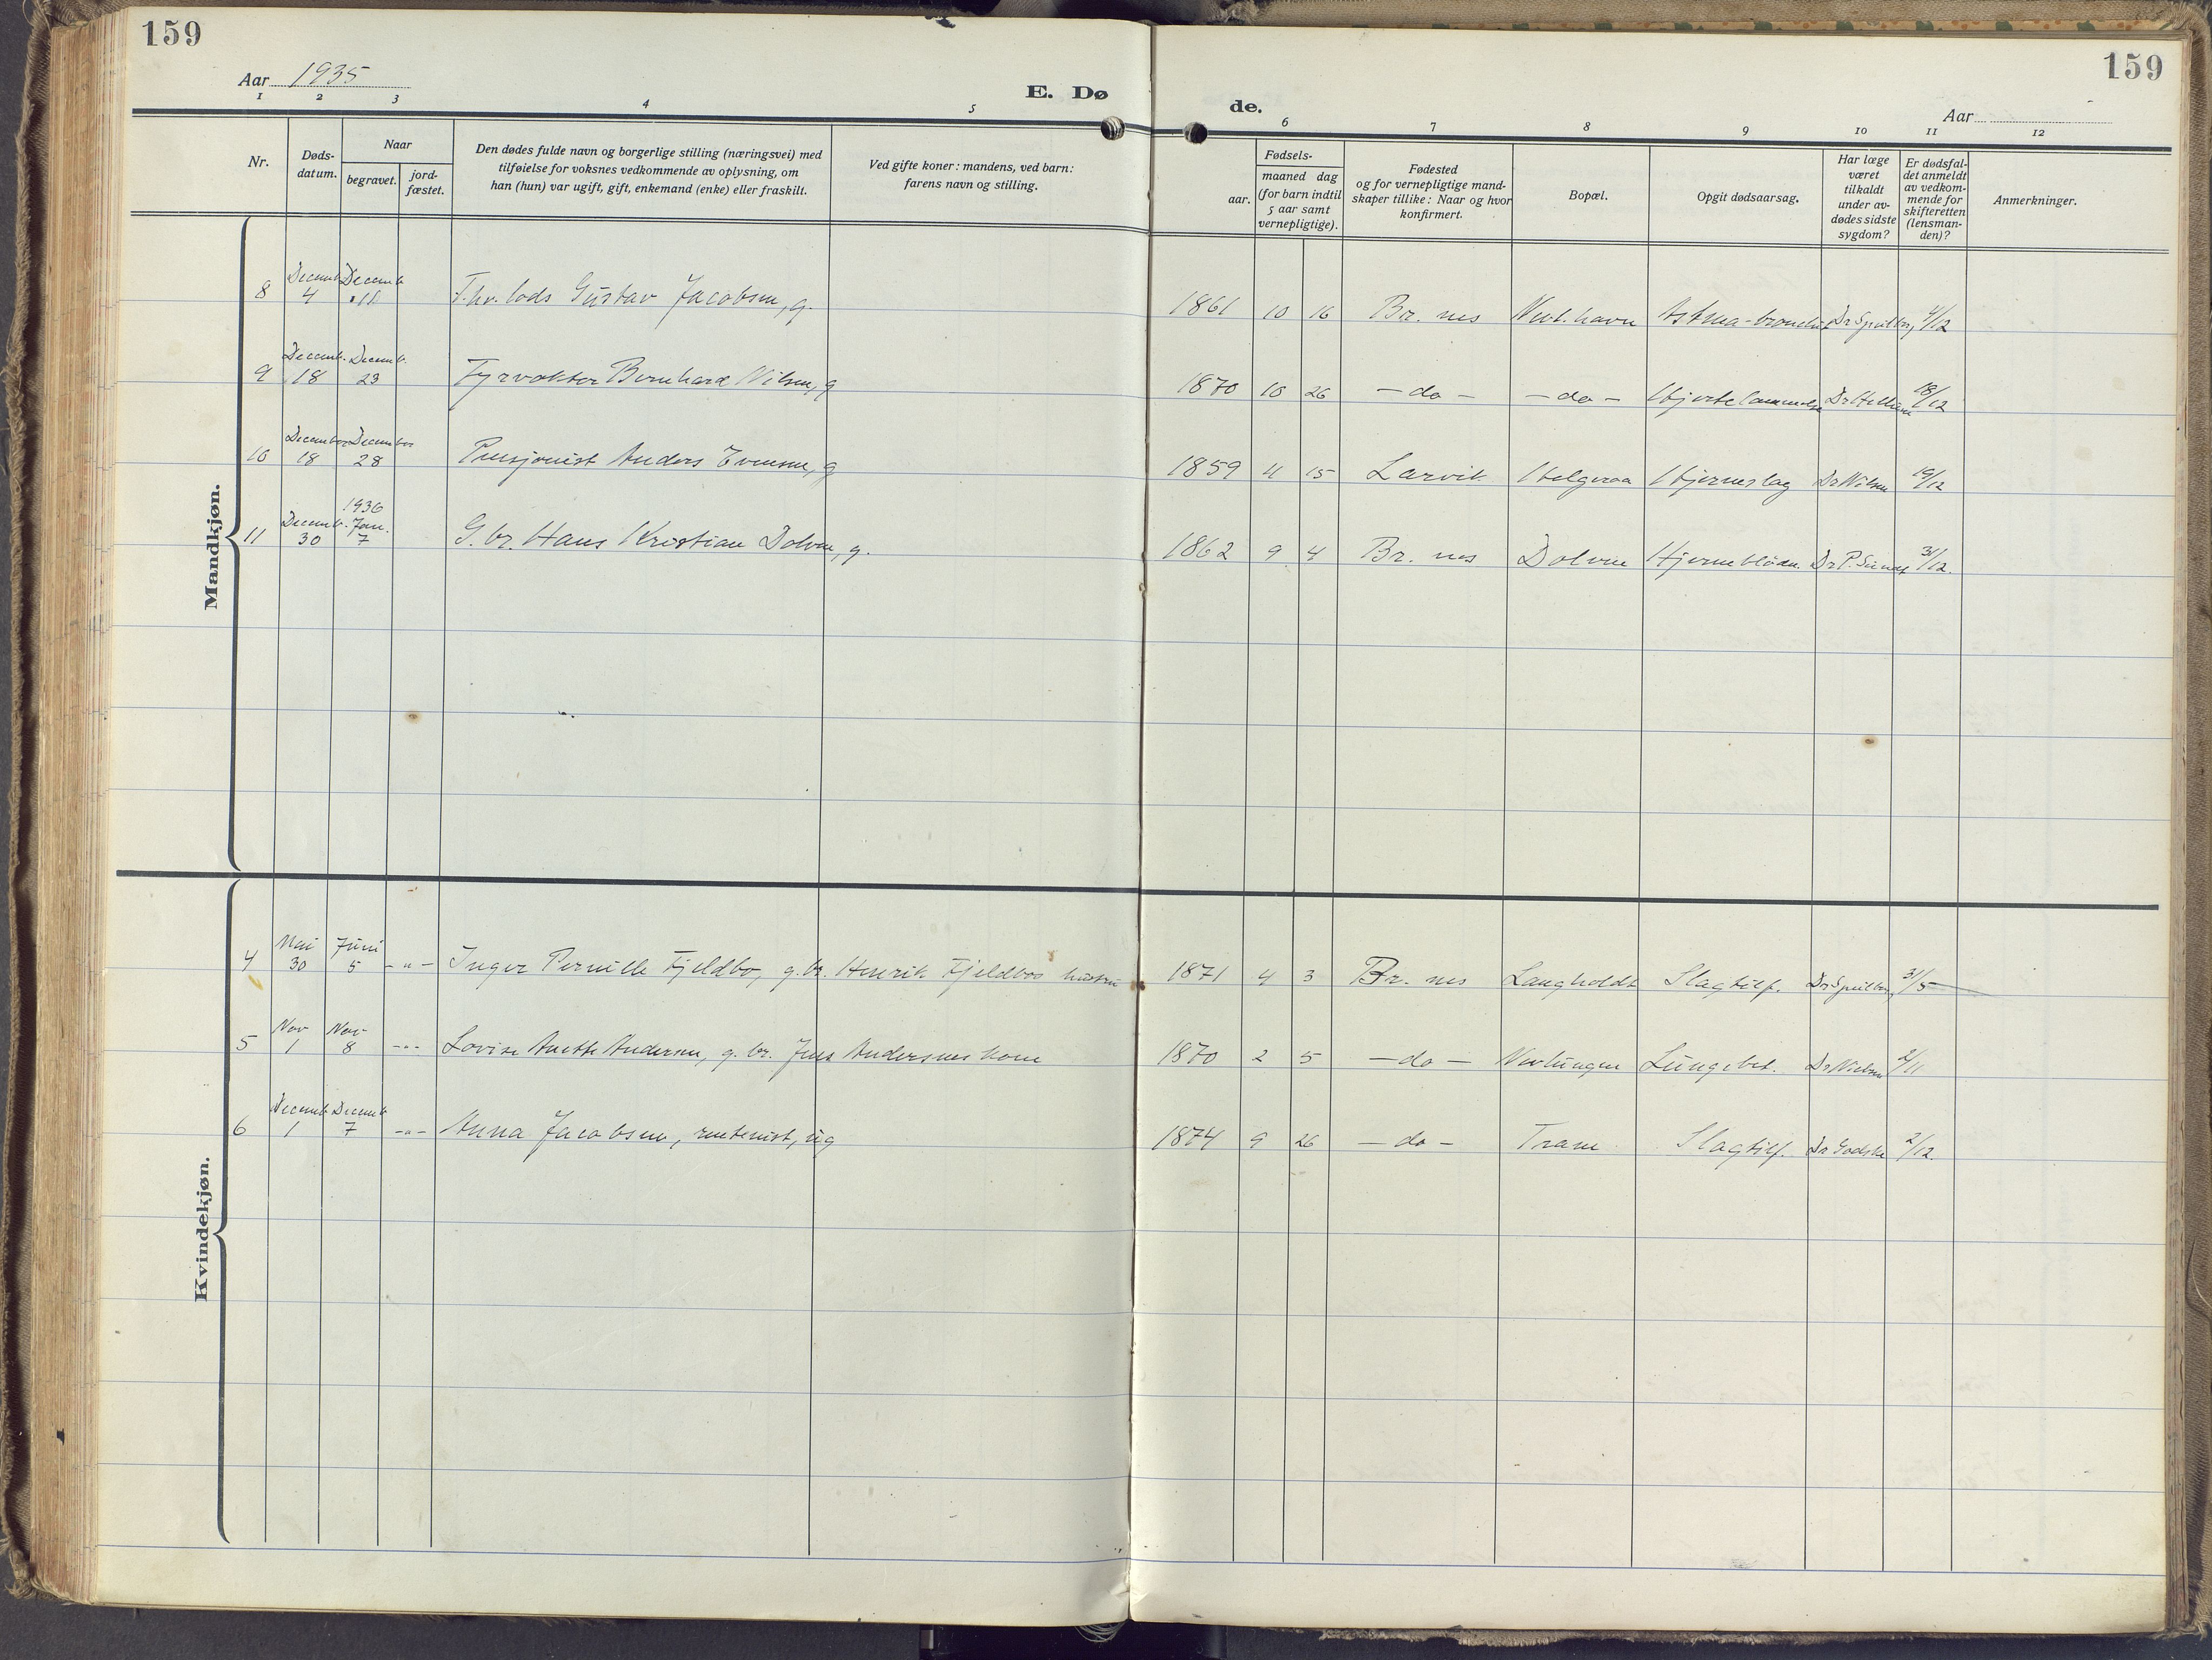 159
159
Aar 1935
E. Dø
de.
Aar
1 2 3 4 5 6 7 8 9 10 11 12
Nr.
Døds-
datum.
Naar
begravet.
jord-
fæstet.
Den dødes fulde navn og borgerlige stilling (næringsvei) med
tilføielse for voksnes vedkommende av oplysning, om
han (hun) var ugift, gift, enkemand (enke) eller fraskilt.
Ved gifte koner: mandens, ved barn:
farens navn og stilling.
Fødsels-
aar.
maaned dag
(for barn indtil
5 aar samt
vernepligtige).
Fødested
og for vernepligtige mand-
skaper tillike: Naar og hvor
konfirmert.
Bopæl.
Opgit dødsaarsag.
Har læge
været
tilkaldt
under av-
dødes sidste
sygdom?
Er dødsfal-
det anmeldt
av vedkom-
mende for
skifteretten
(lensman-
den)?
Anmerkninger.
Mandkjøn.
8 Decemb. 4 Decemb. F.hv. lods Gustav Jacobsen, g. 1861 10 16 Br. nes Nevl.havn Astma-bronchit 4/12
9 Decemb. 18 Decemb. 23 Fyrvokter Bernhard Nilsen, g 1870 10 26 - do - - do - Hjertelammelse 18/12
10 December 18 December 28 Pensjonist Anders Evensen, g 1859 4 15 Larvik Helgeroa Hjerneslag Dr Nilsen 19/12
11 Decemb. 30 1936 Jan. 7 G.br. Hans Kristian Dolven, g. 1862 9 4 Br. nes Dolven Hjerneblødn. 31/12.
Kvindekjøn.
4 Mai 30 Juni 5 -"- Inger Pernille Fjeldbo, g. br. Henrik Fjeldbos hustru 1871 4 3 Br. nes Langholdt Slagtilf. 31/5
5 Nov 1 Nov 8 -"- Lovise Anette Andersen, g. br. Jens Andersens kone 1870 2 5 - do - Nevlungen Lungebet. Dr Nielsen 2/11
6 Decemb 1 Decemb 7 -"- Anna Jacobsen, rentenist, ug 1874 9 26 - do - Tram Slagtilf. Dr Godske 2/12.